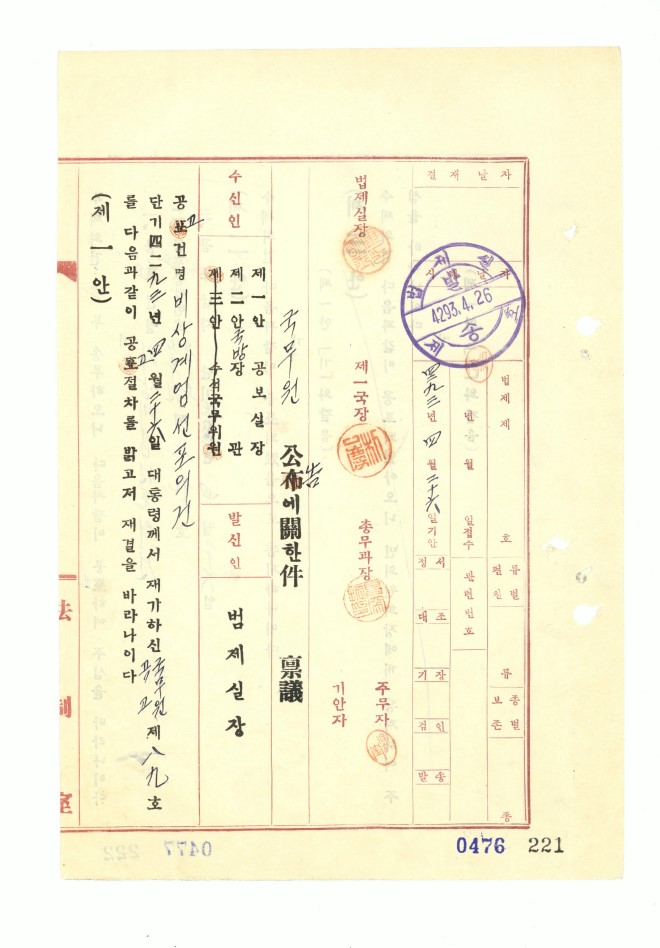 결재날자
법제실
발송
4293.4.26
법제제 호
년 월 일접수
四二九三年 四月 二十六일기안
류별
편철
관련번호
류종별
보존
종
정서
대조
기장
검인
발송
법제실장
제一국장
총무과장
주무자
기안자
국무원 公告에關한件 稟議
수신인
제一안 공보실장
제二안 국방장관
제三안 수석국무위원
발신인
법제실장
공고건명 비상계엄선포의건
단기四二九三년 四월 二十六일 대통령께서 재가하신 국무원공고 제八九호
를 다음과같이 공고절차를 밝고저 재결을 바라나이다
(제一안)
法制室
0477 222
0476 221